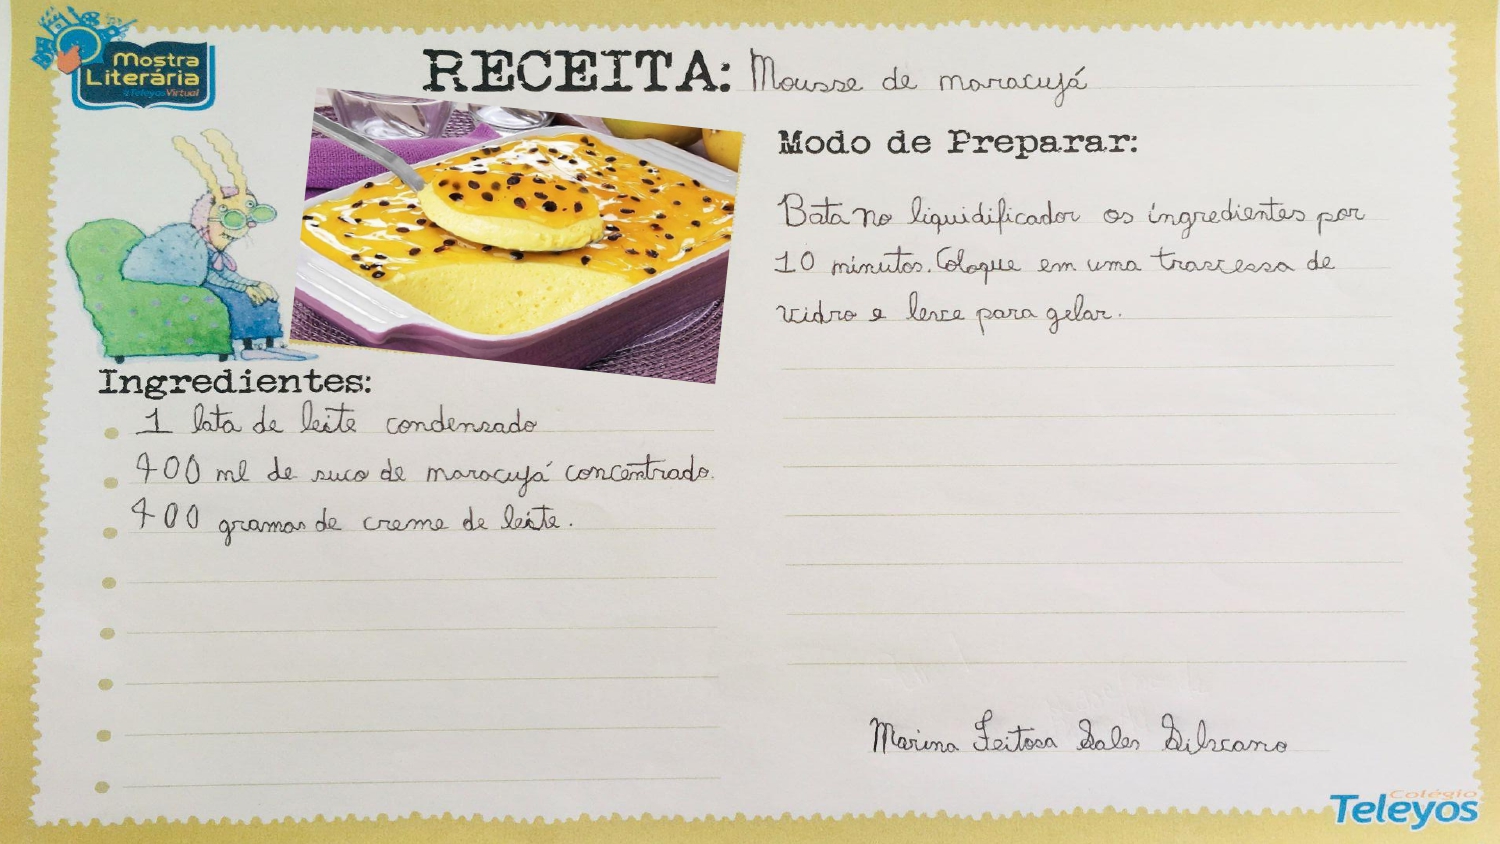 Mostra
Literária
#Teleyos Virtual
RECEITA: Mousse de maracujá
Ingredientes:
1 lata de leite condensado
400 ml de suco de maracujá concentrado.
400 gramas de creme de leite.
Modo de Preparar:
Bata no liquidificador os ingredientes por
10 minutos. Coloque em uma travessa de
vidro e leve para gelar.
Marina Feitosa Sales Silvano
Colégio
Teleyos